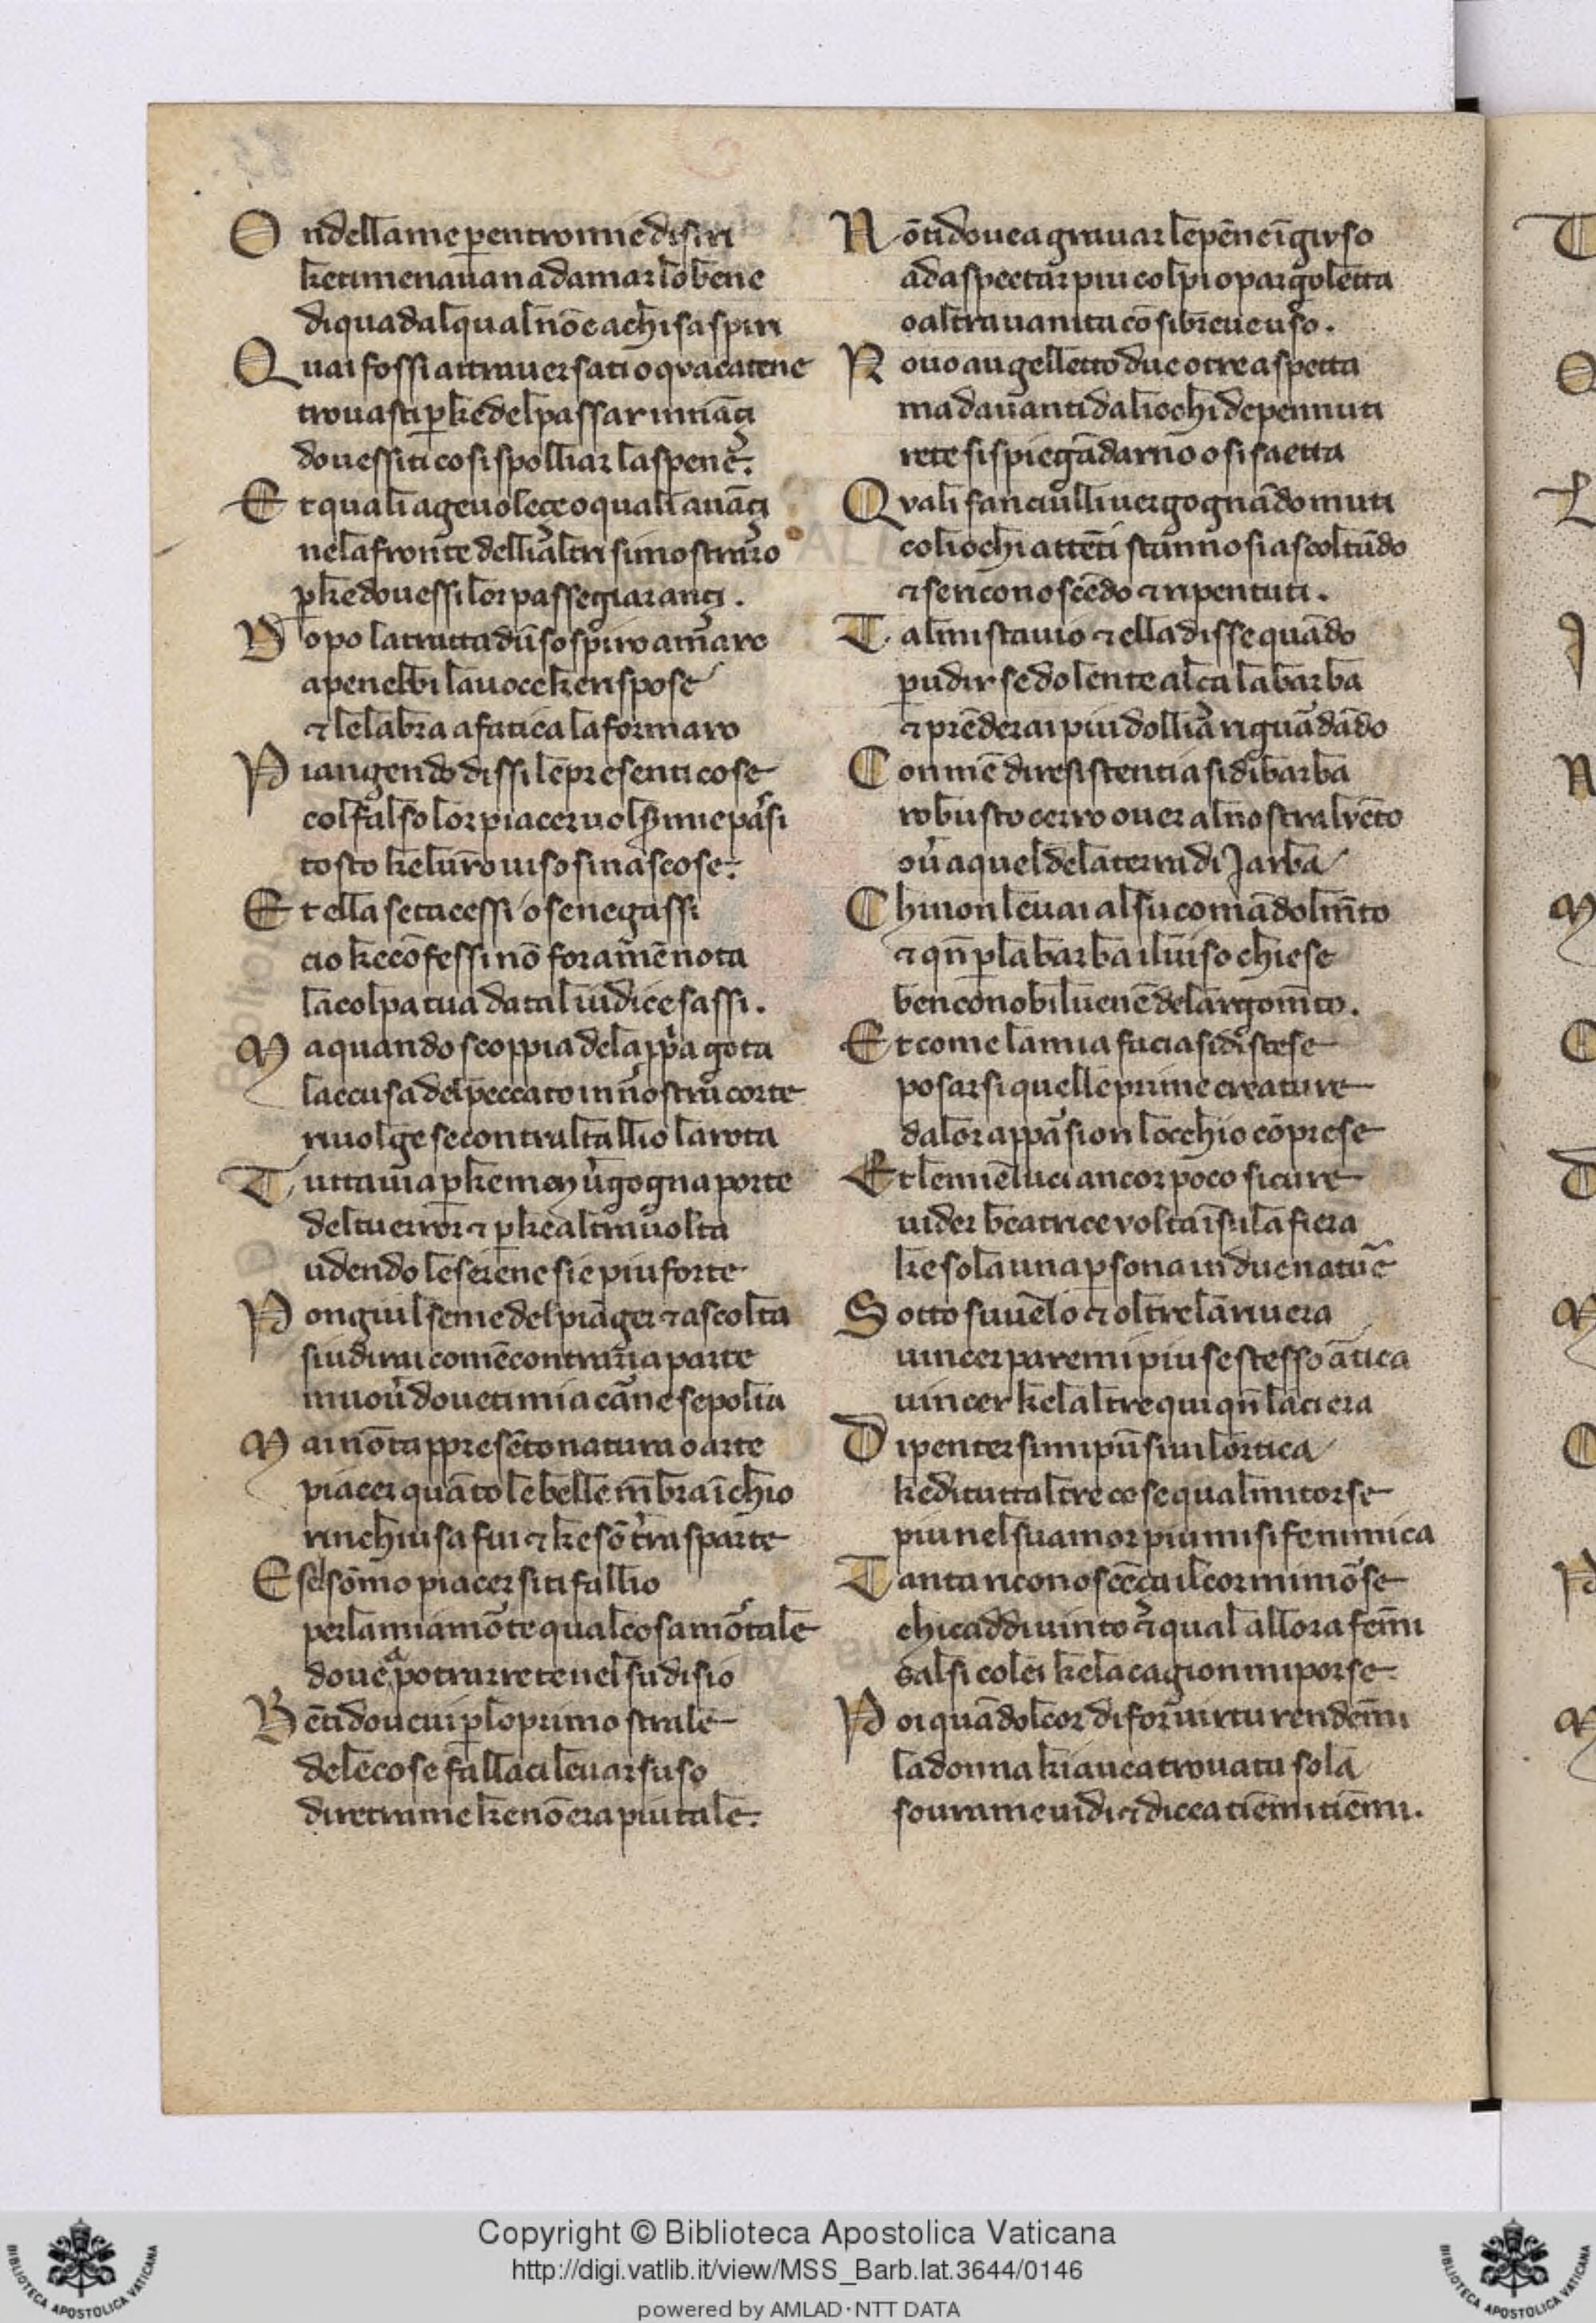 O ndellame p entro nnie disiri
ke timenauan ad amar lo bene
di qua dalqual nō e achi saspiri
Q uai fossi attrauersati o qvacatene
trouasti p ke del passar innāçi
douessiti cosi spolliar la spene.
E t quali ageuoleçe o quali auāçi
nela fronte delli altri si mostraro
p ke douessi lor passegiar ançi.
D opo la tratta dū sospiro amaro
apena ebbi la uoce ke rispose
⁊ le labra a fatica la formaro
P iangendo dissi le presenti cose
col falso lor piacer uolser mie passi
tosto kel uro uiso si nascose.
E t ella se tacessi o se negassi
cio ke cōfessi nō fora mē nota
la colpa tua da tal iudice sassi.
M a quando scoppia de la ppa gota
laccusa del peccato in nostra corte
riuolge se contral tallio la rota
T uttauia p ke mey ūgogna porte
del tu error ⁊ p ke altra uolta
udendo le serene sie piu forte
P on giu il seme del piāger ⁊ ascolta
si udirai come contraria parte
muou doueti mia carne sepolta
M ai nō tappresēto natura o arte
piacer quāto le belle mbra ī chio
rinchiusa fui ⁊ ke sō tra sparte
E sel sōmo piacer si ti fallio
per la mia mōrte qual cosa mōrtale
douea poi trarre te nel su disio
B ē ti doueui p lo primo strale
dele cose fallaci leuar suso
diretrame ke nō era piu tale.
N ō ti douea grauar le pēne ī giuso
ad aspectar piu colpi o pargoletta
o altra uanita cō si breue uso.
N ouo augelletto due o tre aspetta
ma dauanti dali ochi de pennuti
rete si spiega īdarno o si saetta
Q vali fanciulli uergognādo muti
coli ochi a terra stanno si ascoltādo
⁊ se riconoscēdo ⁊ ripentuti.
T al mi stauio ⁊ ella disse quādo
p udir se dolente alça la barba
⁊ prēderai piu dollia riguadādo
C on mē di resistentia si dibarba
robusto cerro ouer al nostral vēto
ou a quel dela terra di Jarba
C hi non leuai al su comādo l mto
⁊ qn p la barba il uiso chiese
ben conobi l uenē de largomto.
E t come la mia facia si distese
posarsi quelle prime creature
da lor appasion locchio cōprese
E t le mie luci ancor poco sicure
uider beatrice volta ī su la fiera
ke sola una p sona in due nature
S otto su uelo ⁊ oltre la riuera
uincer paremi piu se stesso ātica
uincer ke laltre qui qn la ci era
D i penter si mi pūse iui lortica
ke di tutta ltre cose qual mi torse
piu nel su amor piu mi si fe nimica
T anta riconoscēça il cor mi mōrse
chi caddi uinto ⁊ qual allora femi
salsi colei ke la cagion mi porse
P oi quādol cor di for uirtu rendemi
la donna kiauea trouata sola
soura me uidi ⁊ dicea tiemi tiemi.
Copyright © Biblioteca Apostolica Vaticana
http://digi.vatlib.it/view/MSS_Barb.lat.3644/0146
powered by AMLAD·NTT DATA
BIBLIOTECA APOSTOLICA VATICANA
BIBLIOTECA APOSTOLICA VATICANA